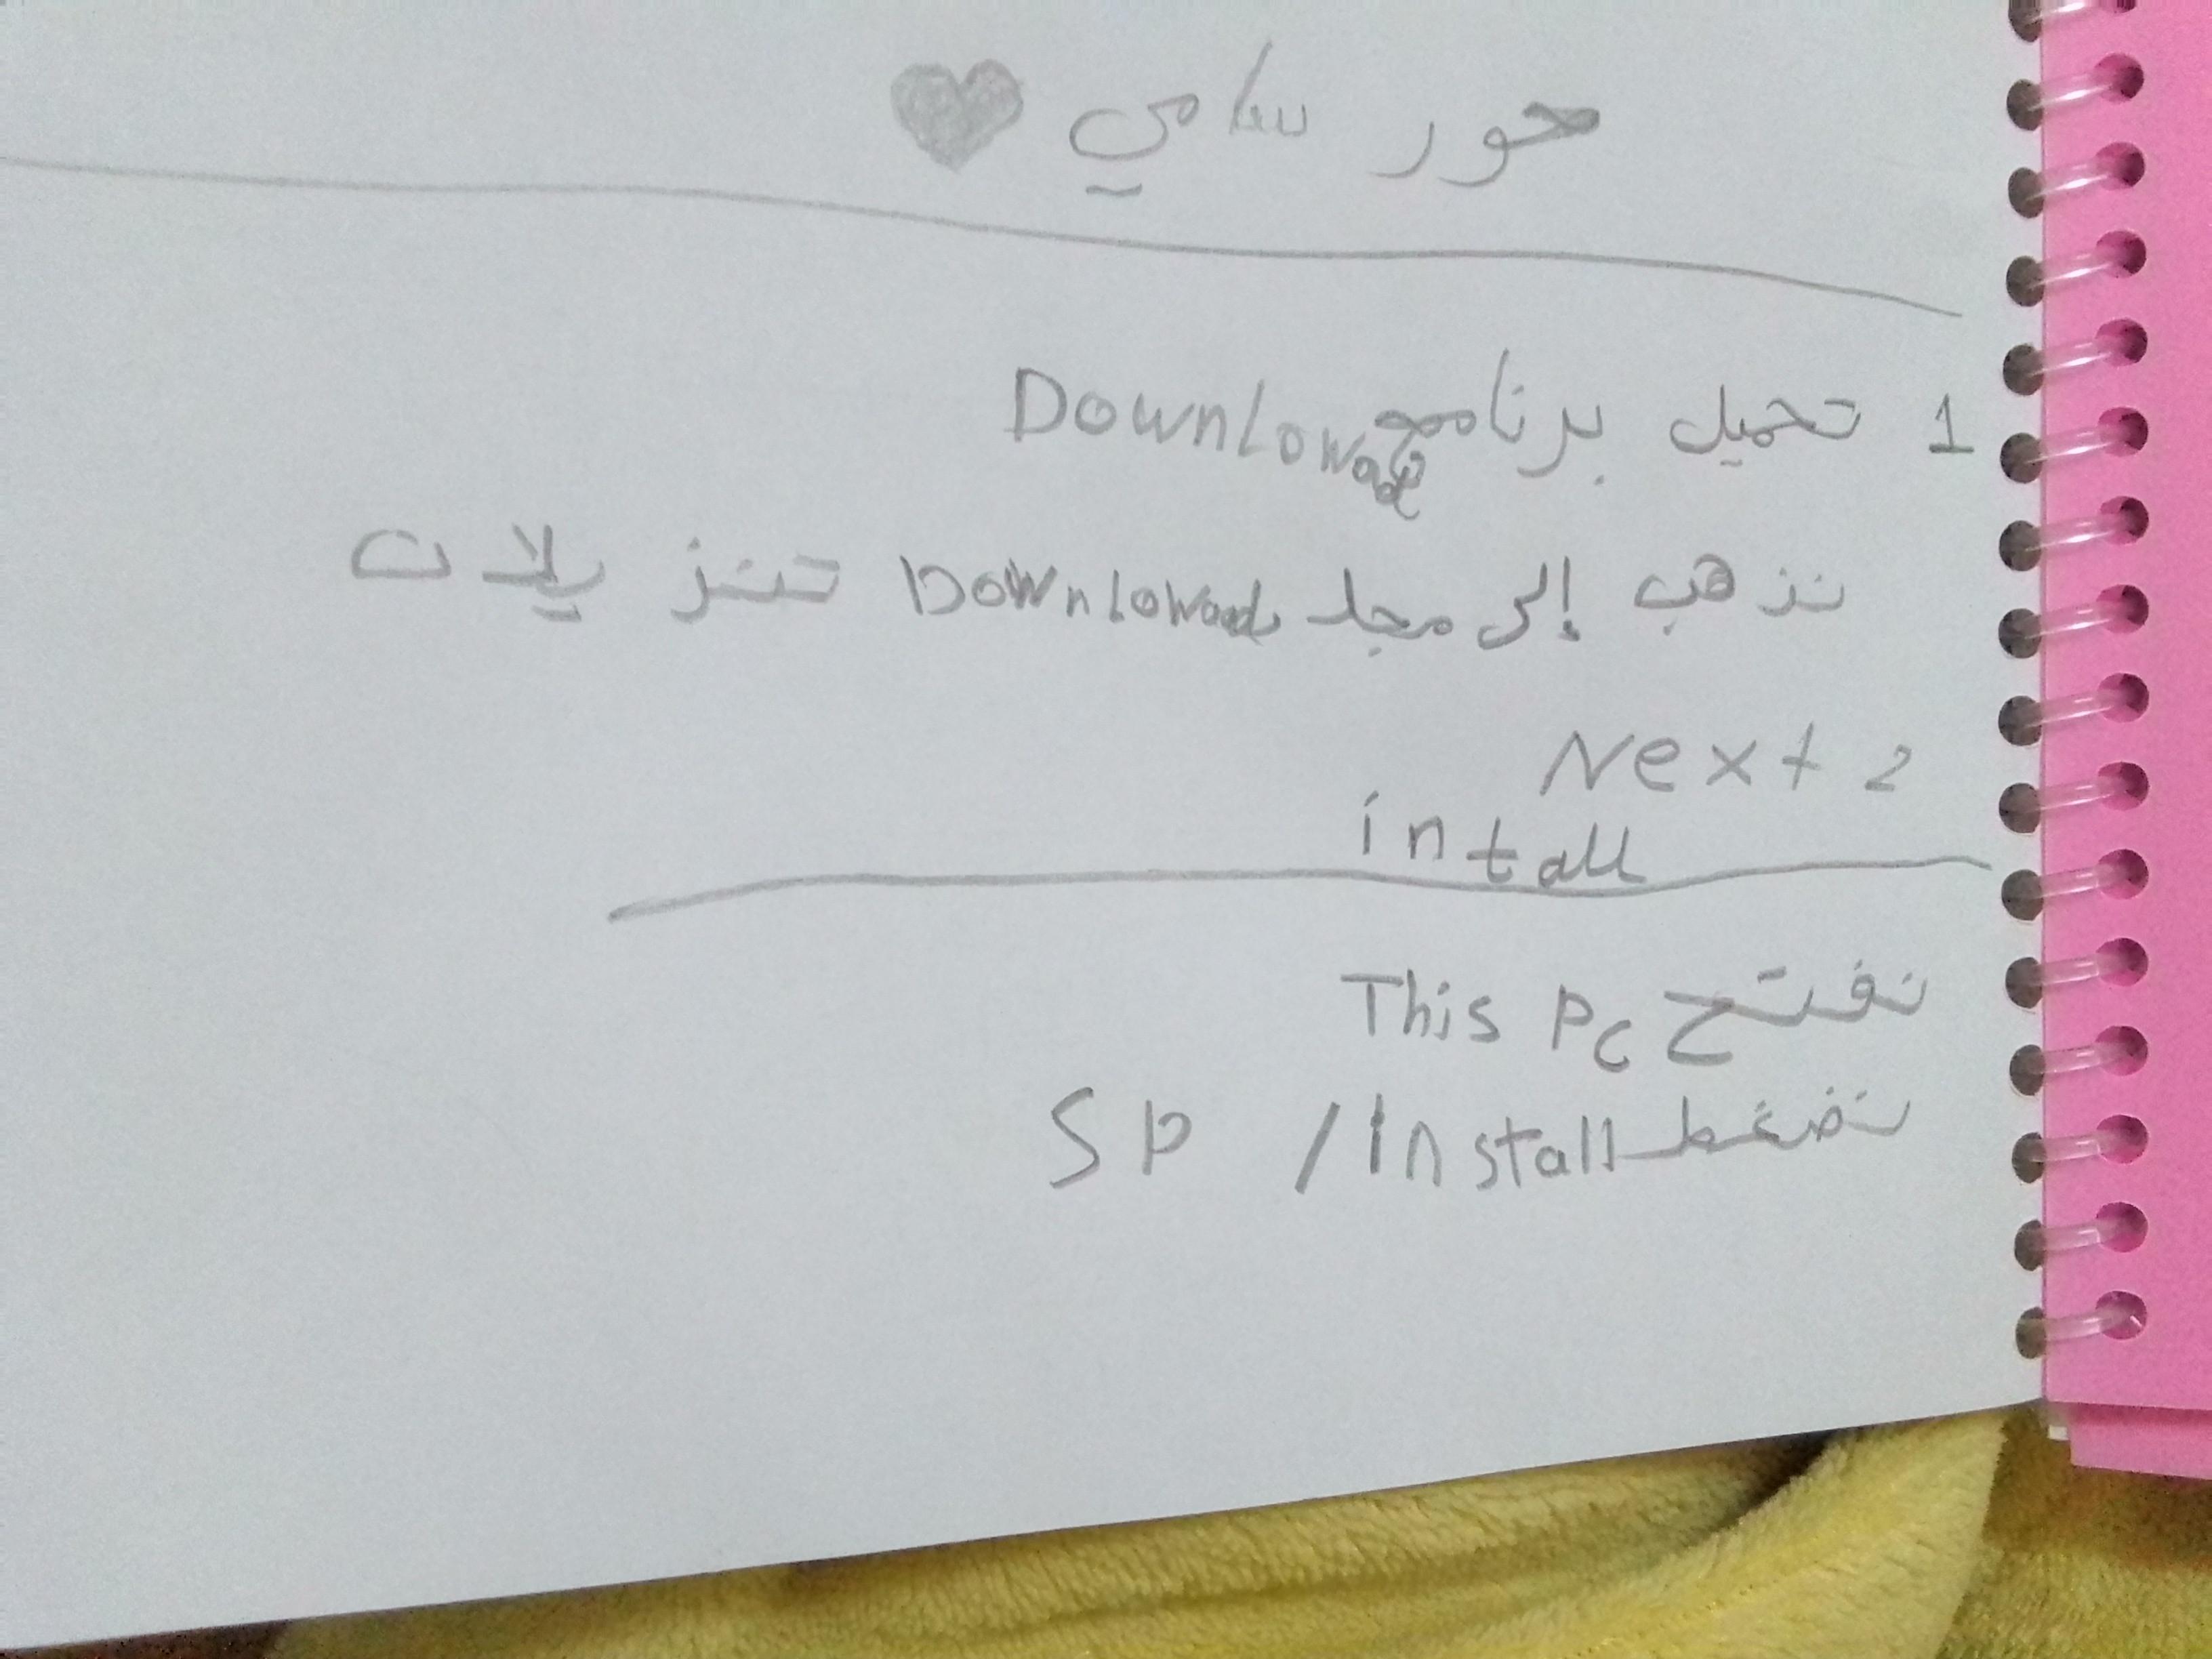 حور سامي
1 تحميل برنامج Downlowad
نذهب إلى مجلد Downlowad تنزيلات
Next 2
intall
نفتح This Pc
نضغط Install / SP